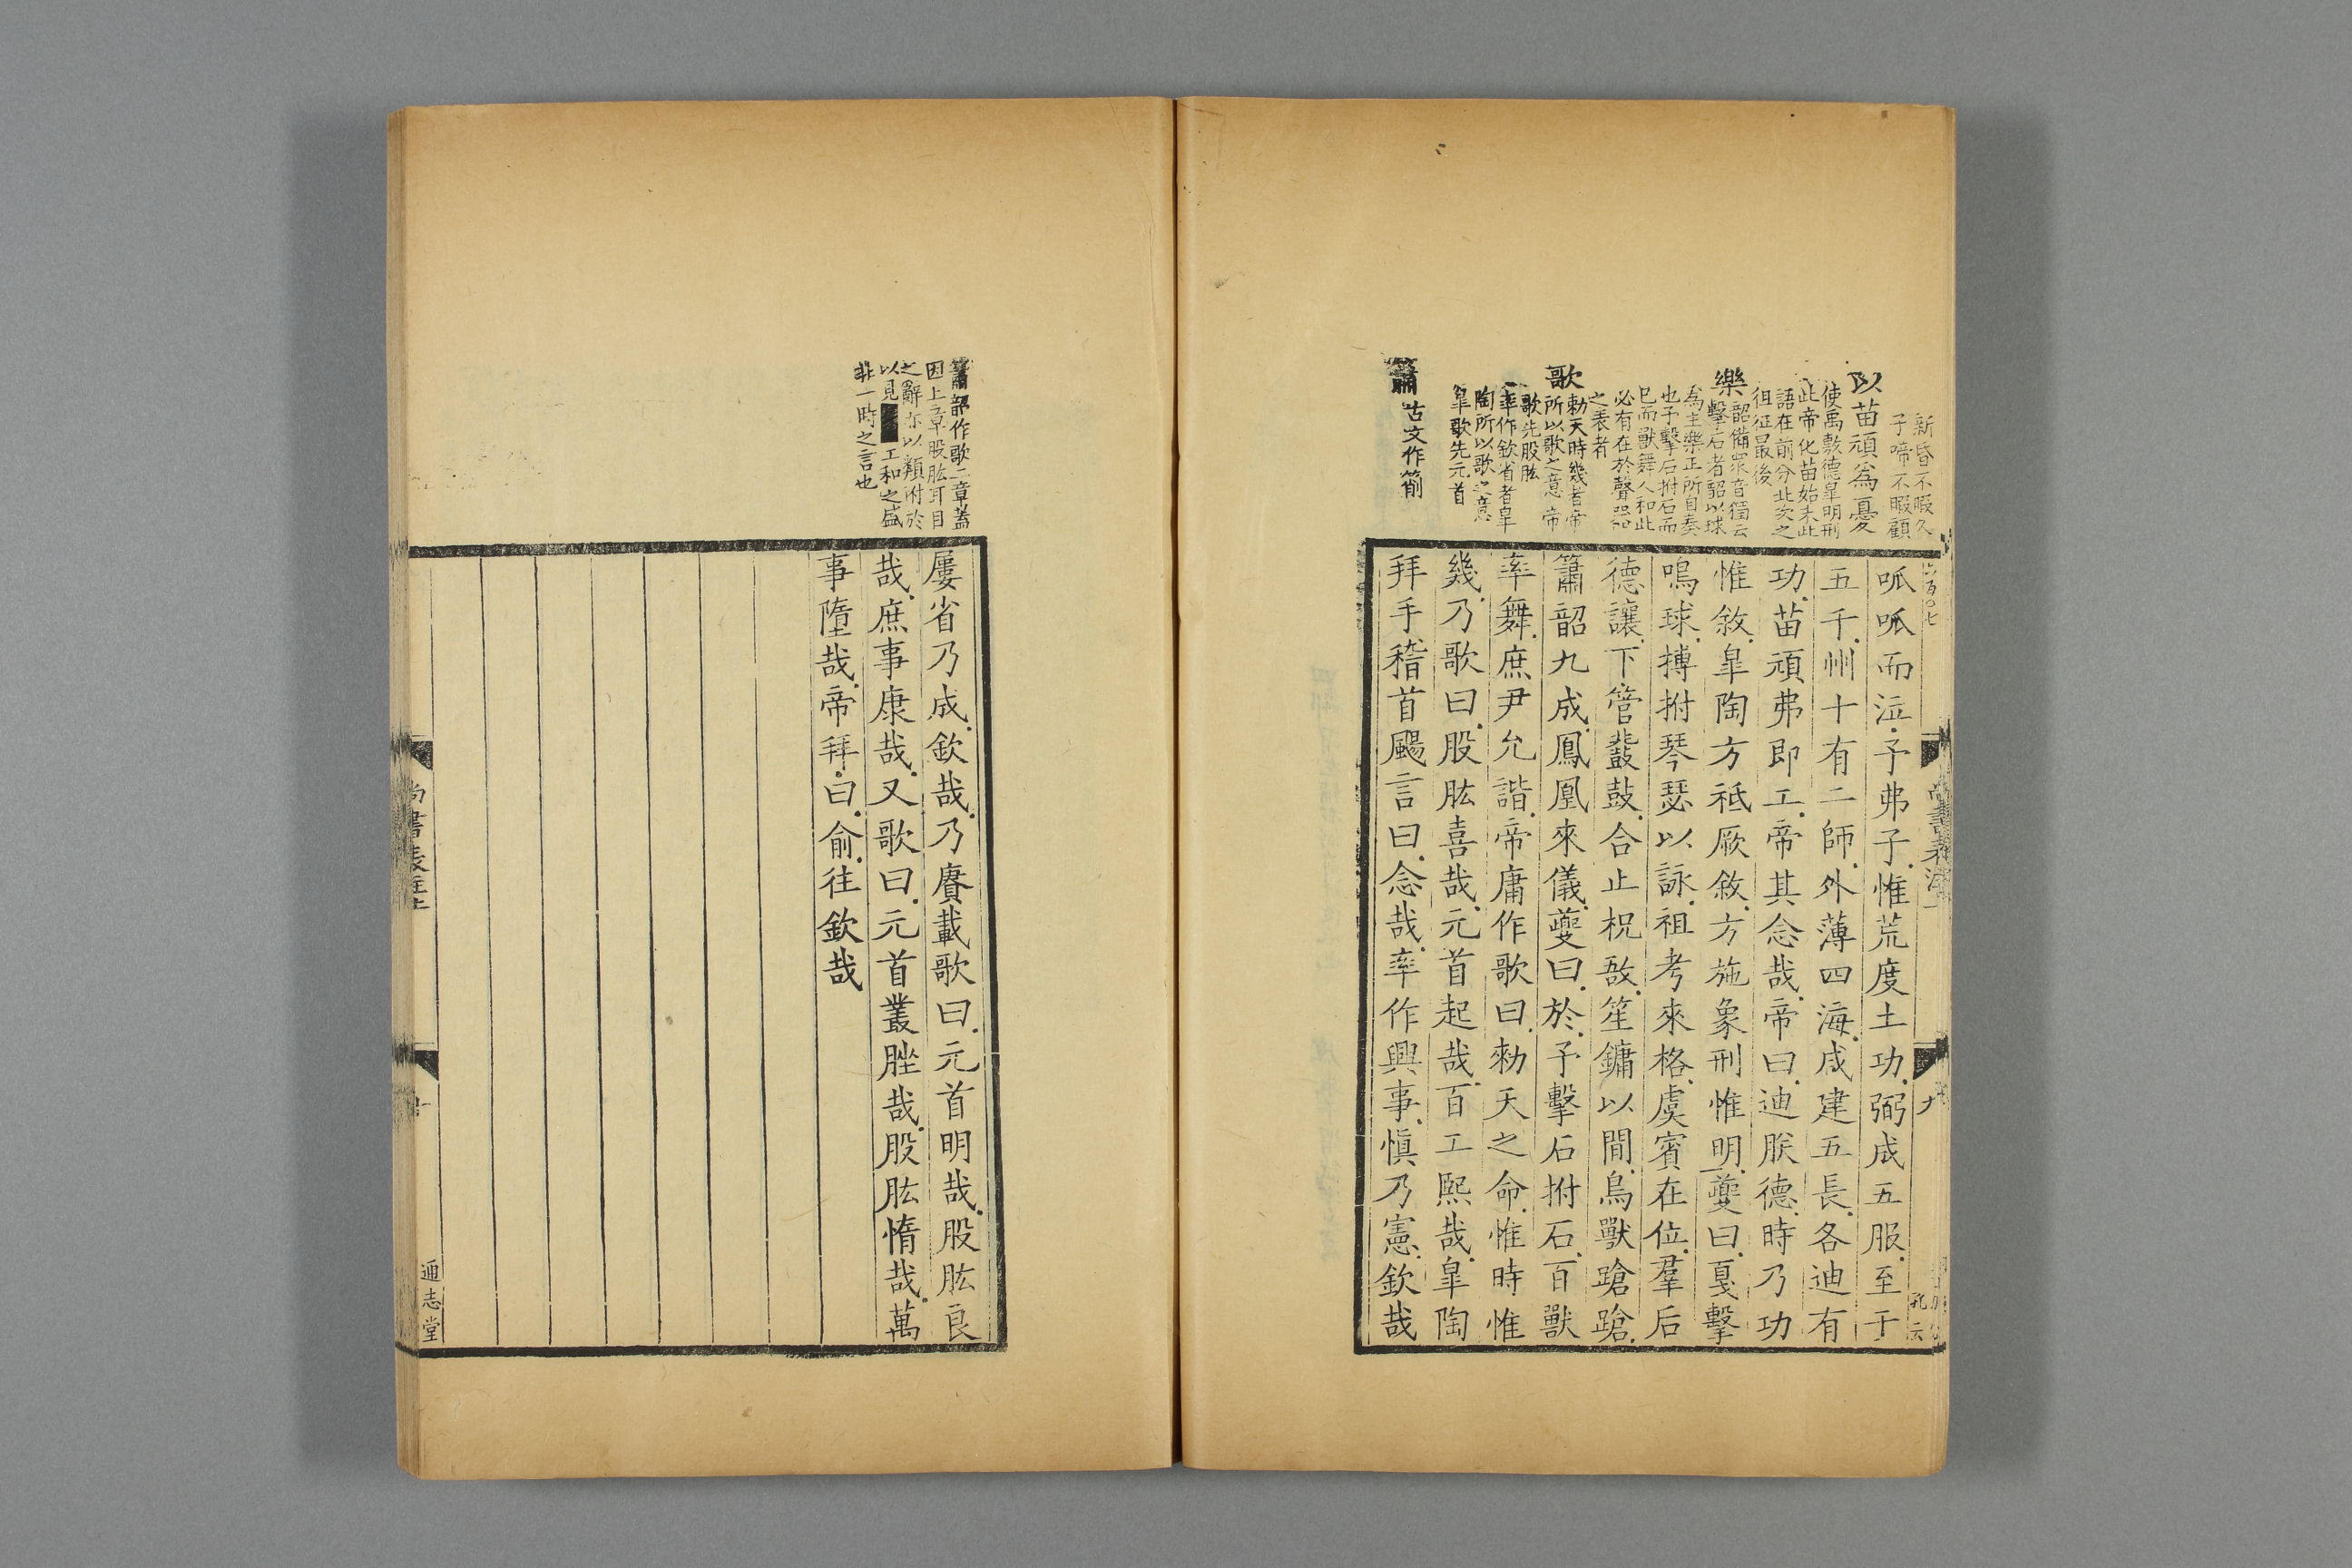 新昏不暇久
子啼不暇顧
以苗頑為憂
使禹敷德皐明刑
此帝化苗始末此
語在前分北次之
徂征最後
樂
韶備衆音獨云
擊石者韶以球
為主樂正所自奏
也予擊石拊石而
已而獸舞人和此
必有在於聲器
之表者
歌
勅天時幾者帝
所以歌之意帝
歌先股肱
率作欽省者皐
陶所以歌之意
皐歌先元首
簫
古文作箾
呱呱而泣予弗子惟荒度土功弼成五服至于
五千州十有二師外薄四海咸建五長各迪有
功苗頑弗即工帝其念哉帝曰迪朕德時乃功
惟敘皐陶方祗厥敘方施象刑惟明夔曰戛擊
鳴球搏拊琴瑟以詠祖考來格虞賓在位羣后
德讓下管鼗鼓合止柷敔笙鏞以間鳥獸蹌蹌
簫韶九成鳳凰來儀夔曰於予擊石拊石百獸
率舞庶尹允諧帝庸作歌曰勅天之命惟時惟
幾乃歌曰股肱喜哉元首起哉百工熙哉皐陶
拜手稽首颺言曰念哉率作興事愼乃憲欽哉
簫韶作歌二章蓋
因上章股肱耳目
之辭亦以類附於
以見工和之盛
非一時之言也
屢省乃成欽哉乃賡載歌曰元首明哉股肱良
哉庶事康哉又歌曰元首叢脞哉股肱惰哉萬
事隳哉帝拜曰俞往欽哉
尚書表注上
通志堂